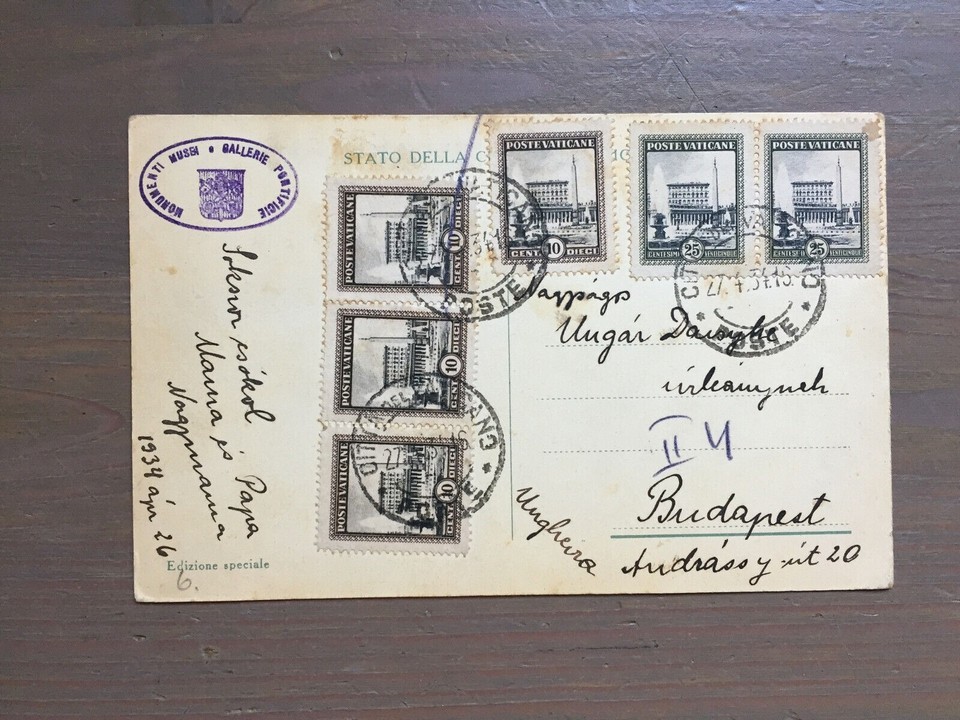 MONUMENTI MUSEI • GALLERIE PONTIFICIE
STATO DELLA C
POSTE VATICANE
10
CENT. DIECI
POSTE VATICANE
25
CENTESIMI VENTICINQUE
POSTE VATICANE
25
CENTESIMI VENTICINQUE
POSTE VATICANE
10
CENT. DIECI
POSTE VATICANE
10
CENT. DIECI
POSTE VATICANE
10
CENT. DIECI
POSTE
27.4.34.16
POSTE
Sokszor csókol
Mama és Papa
Nagymama
1934 ápr 26
Edizione speciale
6.
Nagyságos
Ungár Daisyke
úrleánynak
II 4
Budapest
Andrássy út 20
Ungheira